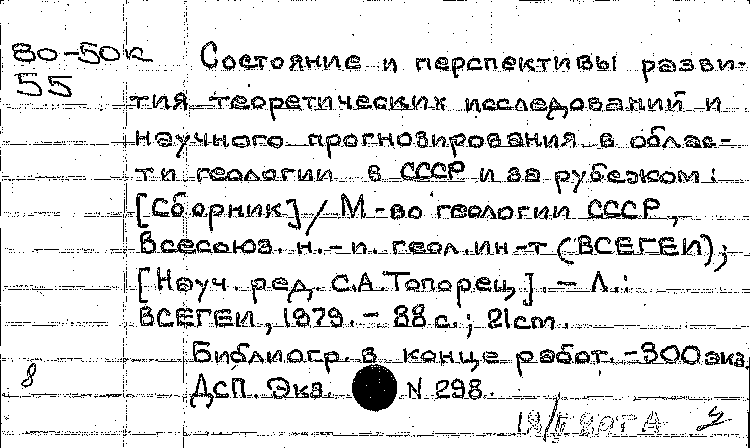 80-50к Состояние и перспективы разви-
55
тия теоретических исследований и
научного прогнозирования в облас-
ти геологии в СССР и за рубежом:
[Сборник]/ М-во геологии СССР,
Всесоюз. н.-и. геол. ин-т (ВСЕГЕИ);
[Науч. ред. С.А. Топорец]. - Л.:
ВСЕГЕИ, 1979. - 88 с.; 21 cm.
Библиогр. в конце работ. - 300 экз.
8 ДСП. Экз. N 298.